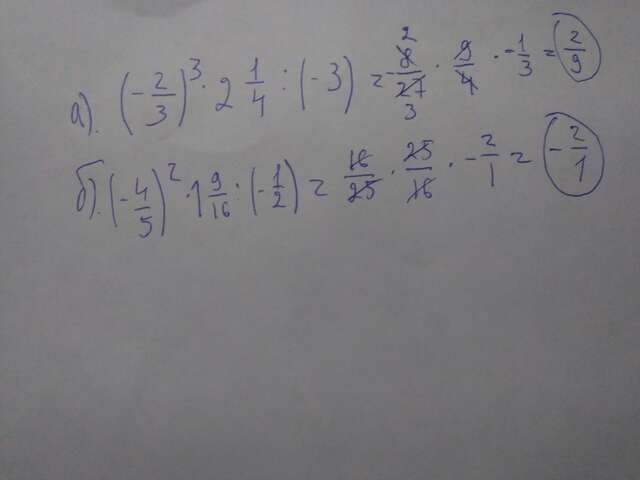 а). (-2/3)³ · 2 1/4 : (-3) = -8/27 · 9/4 · -1/3 = 2/9
б). (-4/5)² · 1 9/16 : (-1/2) = 16/25 · 25/16 · -2/1 = -2/1